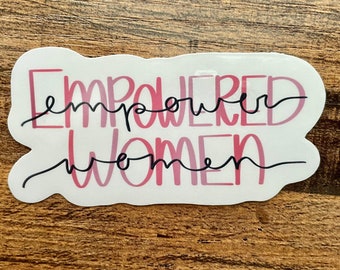 EMPOWERED
empower
WOMEN
women